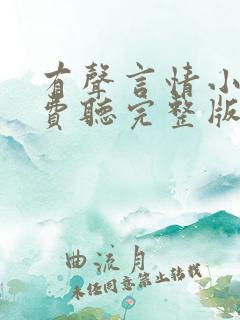 有聲言情小
費聽完整版
曲流月
未经同意禁止转载